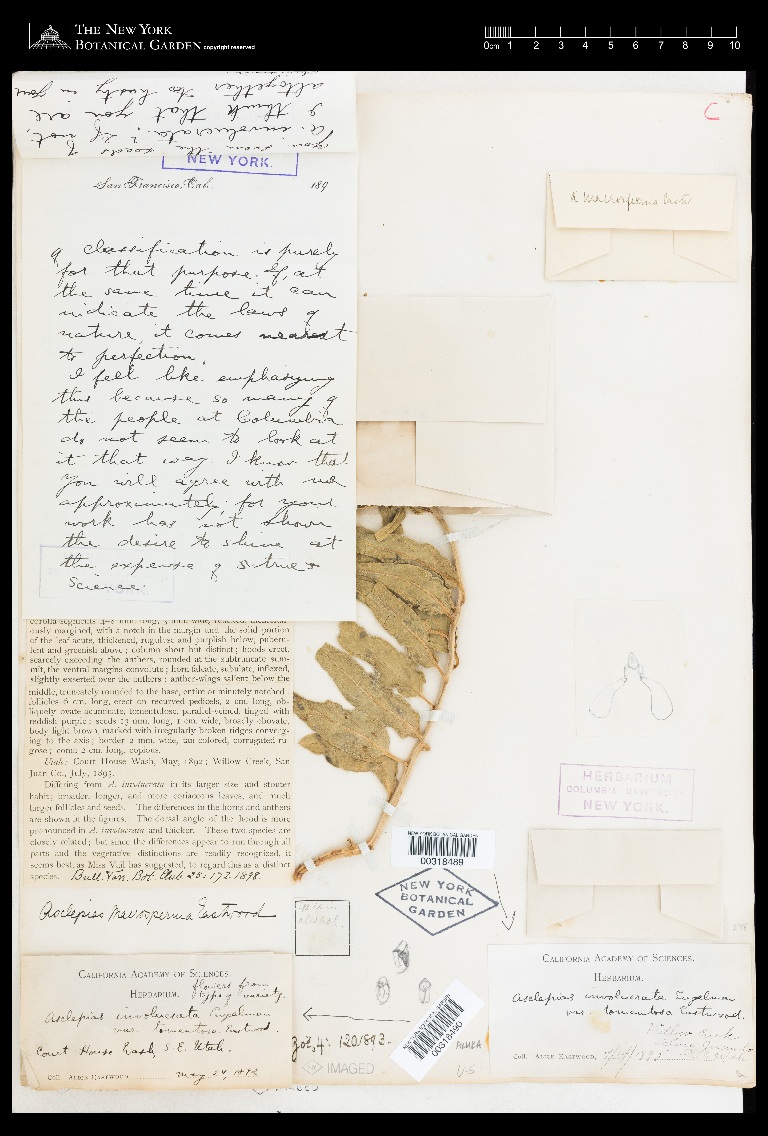 THE NEW YORK
BOTANICAL GARDEN copyright reserved
0cm 1 2 3 4 5 6 7 8 9 10
C
you in the seeds of
A. involucrata? If not,
I think that you are
altogether too hasty in your
NEW YORK.
San Francisco, Cal. 189
of classification is purely
for that purpose. If, at
the same time it can
indicate the laws of
nature, it comes nearest
to perfection.
I feel like emphasizing
this because so many of
the people at Columbia
do not seem to look at
it that way. I know that
you will agree with me
approximately for your
work has not shown
the desire to shine at
the expense of true
Science.
A macrosperma Eastw
corolla-segments 4–8 mm. long, 3 mm. wide, reflexed,
ously margined, with a notch in the margin and the solid portion
of the leaf acute, thickened, rugulose and purplish below, puberu-
lent and greenish above; column short but distinct; hoods erect,
scarcely exceeding the anthers, rounded at the subtruncate sum-
mit, the ventral margins convolute; horn falcate, subulate, inflexed,
slightly exserted over the anthers; anther-wings salient below the
middle, truncately rounded to the base, entire or minutely notched;
follicles 6 cm. long, erect on recurved pedicels, 2 cm. long, ob-
liquely ovate-acuminate, tomentulose, parallel-veined, tinged with
reddish purple; seeds 13 mm. long, 1 cm. wide, broadly obovate,
body light brown, marked with irregularly broken ridges converg-
ing to the axis; border 2 mm. wide, tan colored, corrugated-ru-
gose; coma 2 cm. long, copious.
Utah: Court House Wash, May, 1892; Willow Creek, San
Juan Co., July, 1895.
Differing from A. involucrata in its larger size and stouter
habit; broader, longer, and more coriaceous leaves, and much
larger follicles and seeds. The differences in the horns and anthers
are shown in the figures. The dorsal angle of the hood is more
pronounced in A. involucrata and thicker. These two species are
closely related; but since the differences appear to run through all
parts and the vegetative distinctions are readily recognized, it
seems best, as Miss Vail has suggested, to regard this as a distinct
species. Bull. Torr. Bot. Club 25: 172. 1898.
Asclepias macrosperma Eastwood
HERBARIUM
COLUMBIA UNIVERSITY
NEW YORK.
NEW YORK BOTANICAL GARDEN
00318489
NEW YORK
BOTANICAL
GARDEN
CALIFORNIA ACADEMY OF SCIENCES.
HERBARIUM. flowers from
type of variety.
Asclepias involucrata Engelman
var. tomentosa Eastwood.
Court House Wash, S. E. Utah.
Coll. ALICE EASTWOOD. May 24, 1892
1201893
IMAGED
NEW YORK BOTANICAL GARDEN
00318490
U.S.
CALIFORNIA ACADEMY OF SCIENCES.
HERBARIUM.
Asclepias involucrata Engelman
var. tomentosa Eastwood.
Willow Creek
Coll. ALICE EASTWOOD, 1895